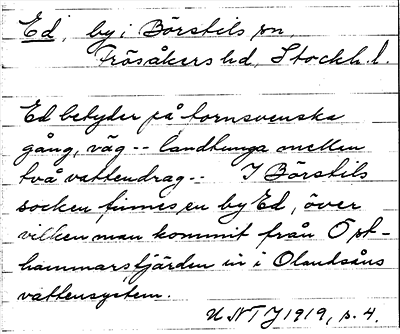 Ed, by i Börstils sn,
Frösåkers hd, Stockh. l.
Ed betyder på fornsvenska
gång, väg -- landtunga mellan
två vattendrag -- I Börstils
socken finnes en by Ed, över
vilken man kommit från Öst-
hammarsfjärden in i Olandsåns
vattensystem.
UNT 1919, s. 4.